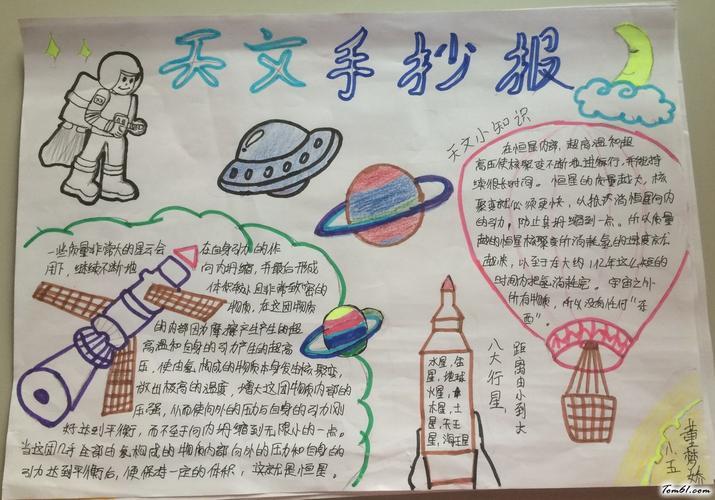 天文手抄报
天文小知识
在恒星内部,超高温和超
高压使核聚变不断地进行,并能持
续很长时间。恒星的质量越大,核
聚变就必须更快,以抵抗消恒星向内
的引力,防止其坍缩到一点。所以质量
越的恒星核聚变所消耗氢的速度就
越快,以至于在大约112年这么短的
时间内把氢消耗完。宇宙之外
所有物质,所以没有任何“东
西”。
一些质量非常大的星云会在自身引力的作
用下,继续不断地向内坍缩,并最后形成
体积较小且非常致密的
物质,在这团物质
的内部因为摩擦产生产生的超
高温和自身的引力产生的超高
压,使由氢构成的物质本身发生核聚变,
放出极高的温度,增大这团物质内部的
压强,从而使向外的压力与自身的引力刚
好达到平衡,而不至于向内坍缩到无限小的一点。
当这团几乎全部由氢构成的物质内部向外的压力和自身的
引力达到平衡后,便保持一定的体积,这就是恒星。
水星,金
星,地球
火星,
木星,土
星,天王
星,海王星
八大行星
距离由小到大
董梦娇
小五
Tom61.com